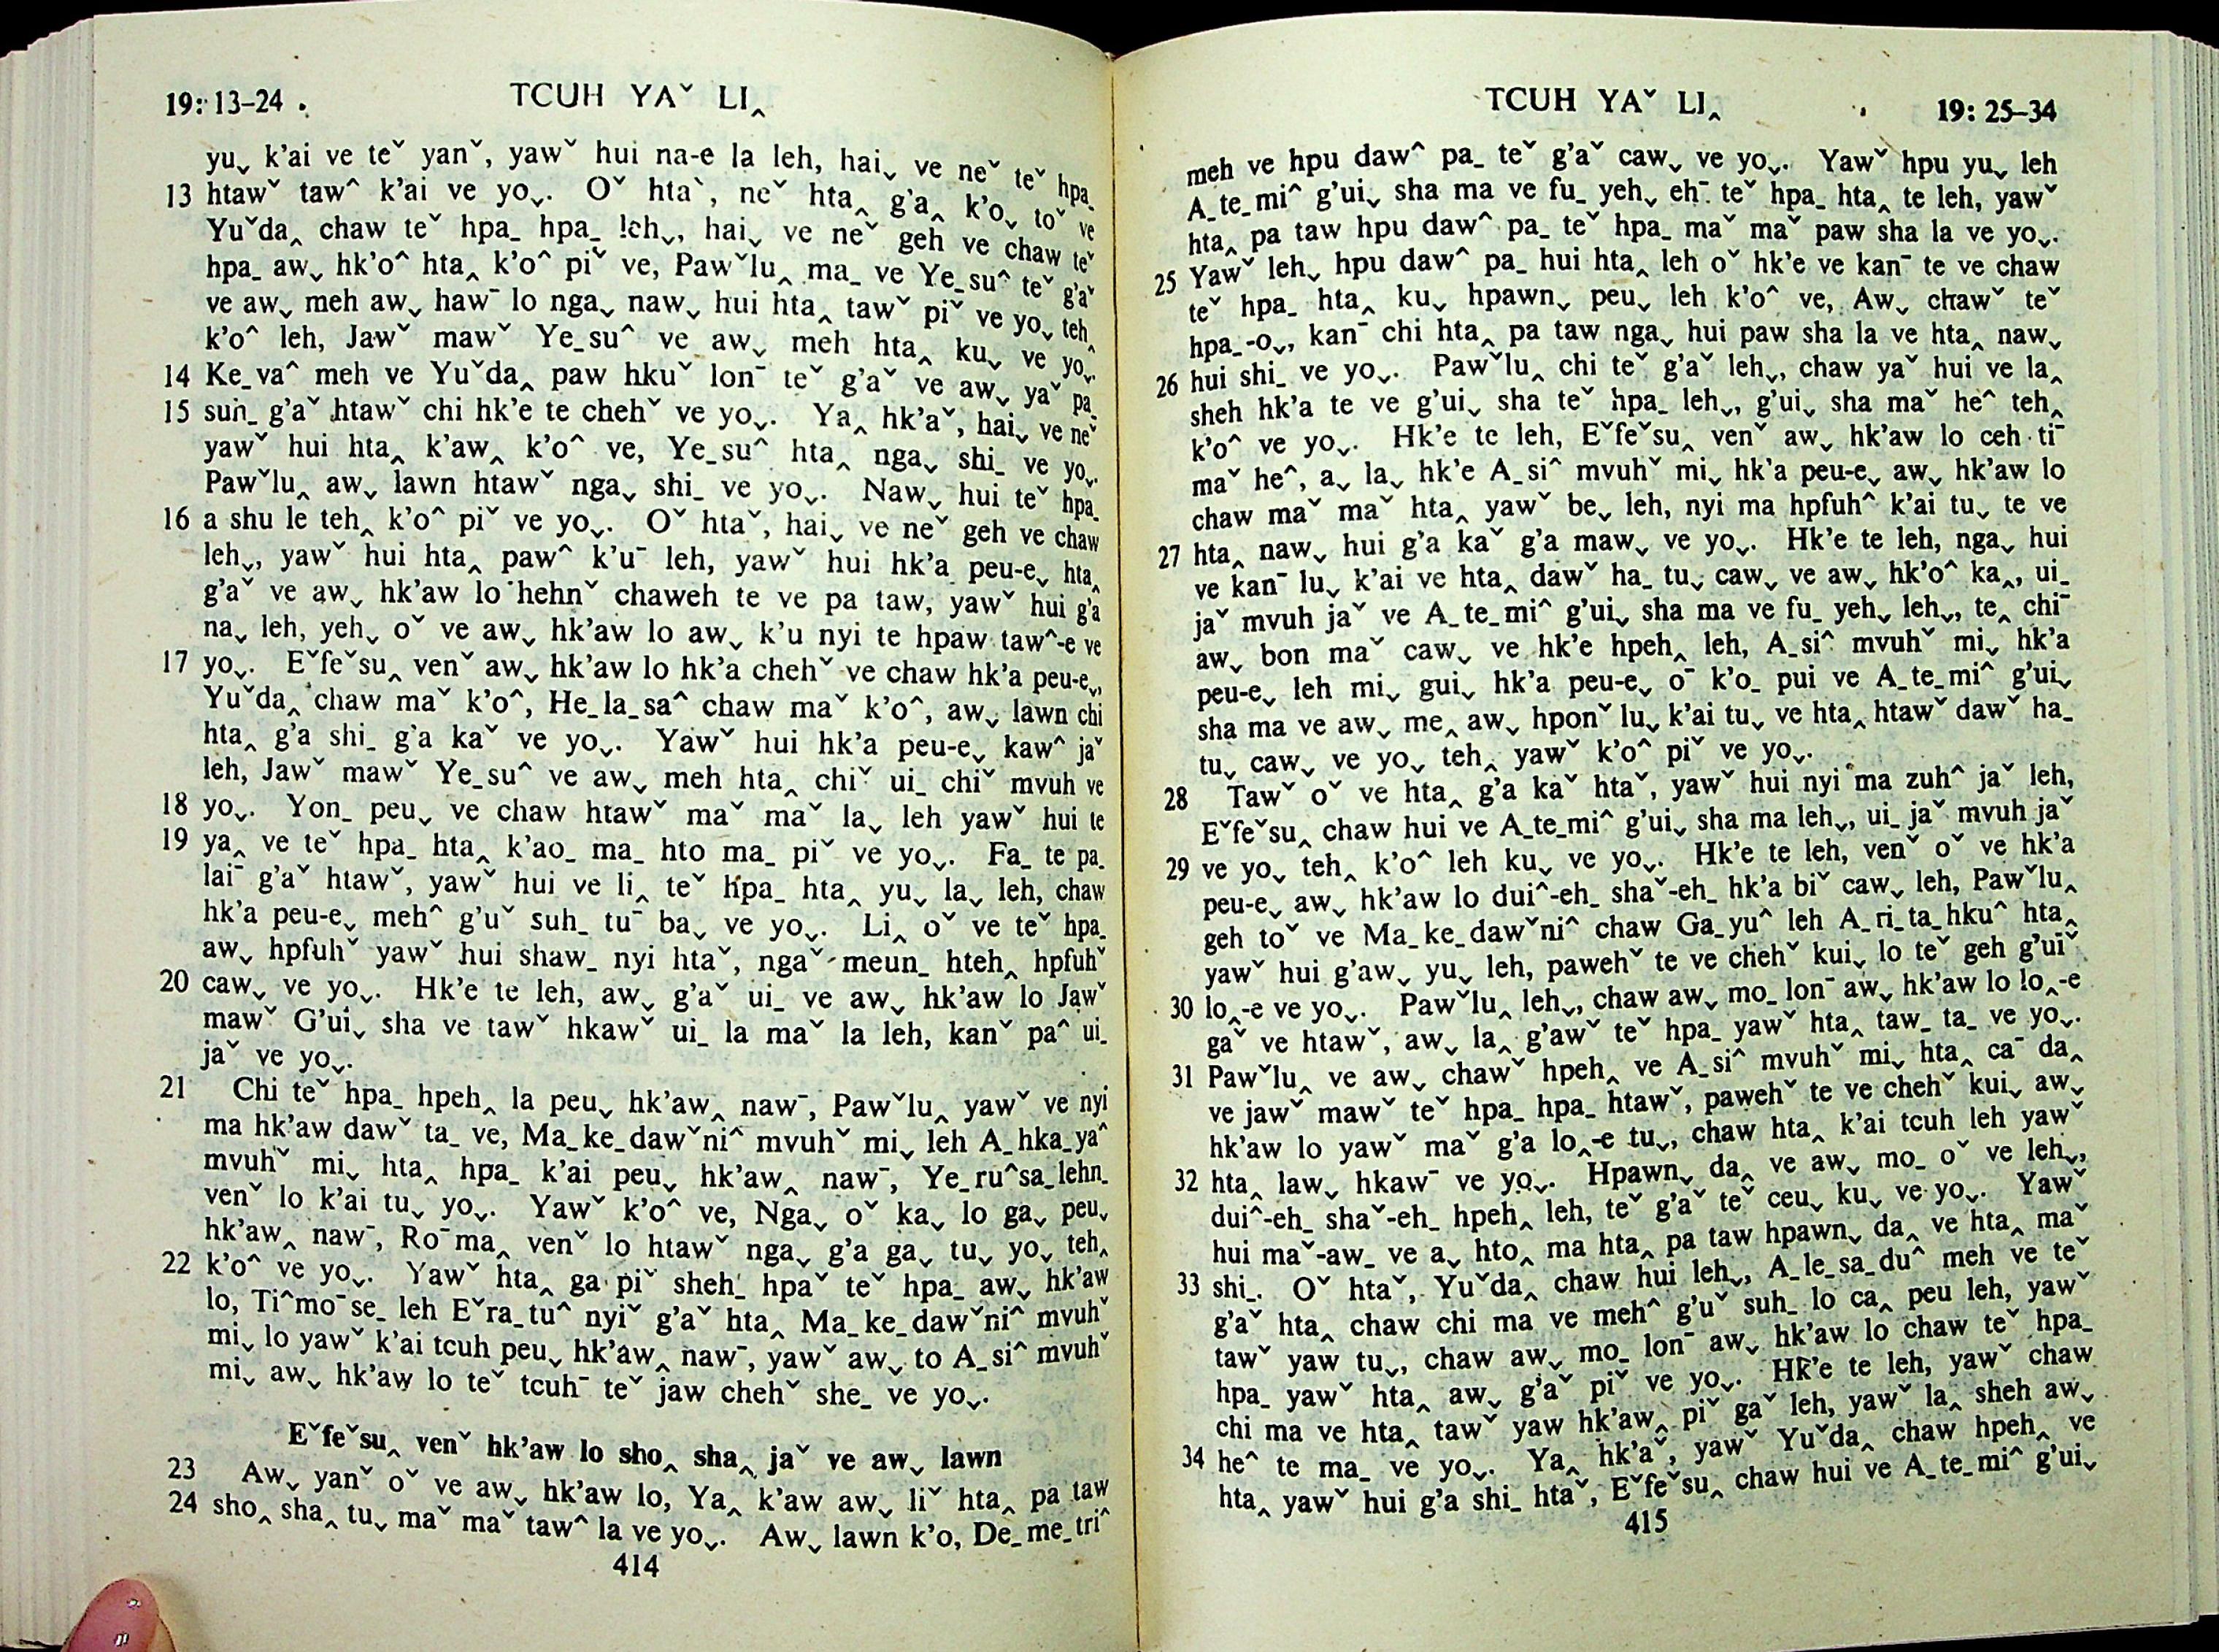 19: 13–24 . TCUH YAˇ LI‸
yuˬ k’ai ve teˇ yanˇ, yawˇ hui na-e la leh, haiˬ ve neˇ teˇ hpaˍ
13 htawˇ taw^ k’ai ve yoˬ. Oˇ htaˋ, neˇ hta‸ g’a‸ k’oˬ toˇ ve
Yuˇda‸ chaw teˇ hpaˍ hpaˍ lehˬ, haiˬ ve neˇ geh ve chaw teˇ
hpaˍ awˬ hk’o^ hta‸ k’o^ piˇ ve, Pawˇlu‸ maˍ ve Yeˍsu^ teˇ g’aˇ
ve awˬ meh awˬ haw¯ lo ngaˬ nawˬ hui hta‸ tawˇ piˇ ve yoˬ teh‸
k’o^ leh, Jawˇ mawˇ Yeˍsu^ ve awˬ meh hta‸ kuˬ ve yoˬ.
14 Keˍva^ meh ve Yuˇda‸ paw hkuˇ lon¯ teˇ g’aˇ ve awˬ yaˇ paˍ
15 suhˍ g’aˇ htawˇ chi hk’e te chehˇ ve yoˬ. Ya‸ hk’aˇ, haiˬ ve neˇ
yawˇ hui hta‸ k’aw‸ k’o^ ve, Yeˍsu^ hta‸ ngaˬ shiˍ ve yoˬ.
Pawˇlu‸ awˬ lawn htawˇ ngaˬ shiˍ ve yoˬ. Nawˬ hui teˇ hpaˍ
16 a shu le teh‸ k’o^ piˇ ve yoˬ. Oˇ htaˇ, haiˬ ve neˇ geh ve chaw
lehˬ, yawˇ hui hta‸ paw^ k’u¯ leh, yawˇ hui hk’a peu-eˬ hta‸
g’aˇ ve awˬ hk’aw lo hehnˇ chaweh te ve pa taw, yawˇ hui g’a
naˬ leh, yehˬ oˇ ve awˬ hk’aw lo awˬ k’u nyi te hpaw taw^-e ve
17 yoˬ. Eˇfeˇsu‸ venˇ awˬ hk’aw lo hk’a chehˇ ve chaw hk’a peu-eˬ,
Yuˇda‸ chaw maˇ k’o^, Heˍlaˍsa^ chaw maˇ k’o^, awˬ lawn chi
hta‸ g’a shiˍ g’a kaˇ ve yoˬ. Yawˇ hui hk’a peu-eˬ kaw^ jaˇ
leh, Jawˇ mawˇ Yeˍsu^ ve awˬ meh hta‸ chiˇ uiˍ chiˇ mvuh ve
18 yoˬ. Yonˍ peuˬ ve chaw htawˇ maˇ maˇ laˬ leh yawˇ hui te
19 ya‸ ve teˇ hpaˍ hta‸ k’aoˍ maˍ hto maˍ piˇ ve yoˬ. Faˍ te paˍ
lai¯ g’aˇ htawˇ, yawˇ hui ve li‸ teˇ hpaˍ hta‸ yuˬ laˬ leh, chaw
hk’a peu-eˬ meh^ g’uˇ suhˍ tu¯ baˬ ve yoˬ. Li‸ oˇ ve teˇ hpaˍ
awˬ hpfuhˇ yawˇ hui shawˍ nyi htaˇ, ngaˇ meunˍ hteh‸ hpfuhˇ
20 cawˬ ve yoˬ. Hk’e te leh, awˬ g’aˇ uiˍ ve awˬ hk’aw lo Jawˇ
mawˇ G’uiˬ sha ve tawˇ hkawˇ uiˍ la maˇ la leh, kanˇ pa^ uiˍ
jaˇ ve yoˬ.
21 Chi teˇ hpaˍ hpeh‸ la peuˬ hk’aw‸ naw¯, Pawˇlu‸ yawˇ ve nyi
ma hk’aw dawˇ taˍ ve, Maˍkeˍdawˇni^ mvuhˇ miˬ leh Aˍhkaˍya^
mvuhˇ miˬ hta‸ hpaˍ k’ai peuˬ hk’aw‸ naw¯, Yeˍru^saˍlehnˍ
venˇ lo k’ai tuˬ yoˬ. Yawˇ k’o^ ve, Ngaˬ oˇ kaˬ lo gaˬ peuˬ
hk’aw‸ naw¯, Ro¯ma‸ venˇ lo htawˇ ngaˬ g’a gaˬ tuˬ yoˬ teh‸
22 k’o^ ve yoˬ. Yawˇ hta‸ ga piˇ shehˍ hpaˇ teˇ hpaˍ awˬ hk’aw
lo, Ti^mo¯seˍ leh Eˇraˍtu^ nyiˇ g’aˇ hta‸ Maˍkeˍdawˇni^ mvuhˇ
miˬ lo yawˇ k’ai tcuh peuˬ hk’aw‸ naw¯, yawˇ awˬ to Aˍsi^ mvuhˇ
miˬ awˬ hk’aw lo teˇ tcuh¯ teˇ jaw chehˇ sheˍ ve yoˬ.
Eˇfeˇsu‸ venˇ hk’aw lo sho‸ sha‸ jaˇ ve awˬ lawn
23 Awˬ yanˇ oˇ ve awˬ hk’aw lo, Ya‸ k’aw awˬ liˇ hta‸ pa taw
24 sho‸ sha‸ tuˬ maˇ maˇ taw^ la ve yoˬ. Awˬ lawn k’o, Deˍmeˍtri^
414
TCUH YAˇ LI‸ 19: 25–34
meh ve hpu daw^ paˍ teˇ g’aˇ cawˬ ve yoˬ. Yawˇ hpu yuˬ leh
Aˍteˍmi^ g’uiˬ sha ma ve fuˍ yehˬ eh¯ teˇ hpaˍ hta‸ te leh, yawˇ
hta‸ pa taw hpu daw^ paˍ teˇ hpaˍ maˇ maˇ paw sha la ve yoˬ.
25 Yawˇ lehˬ hpu daw^ paˍ hui hta‸ leh oˇ hk’e ve kan¯ te ve chaw
teˇ hpaˍ hta‸ kuˬ hpawnˬ peuˬ leh k’o^ ve, Awˬ chawˇ teˇ
hpaˍ-oˬ, kan¯ chi hta‸ pa taw ngaˬ hui paw sha la ve hta‸ nawˬ
26 hui shiˍ ve yoˬ. Pawˇlu‸ chi teˇ g’aˇ lehˬ, chaw yaˇ hui ve la‸
sheh hk’a te ve g’uiˬ sha teˇ hpaˍ lehˬ, g’uiˬ sha maˇ he^ teh‸
k’o^ ve yoˬ. Hk’e te leh, Eˇfeˇsu‸ venˇ awˬ hk’aw lo ceh ti¯
maˇ he^, aˬ laˬ hk’e Aˍsi^ mvuhˇ miˬ hk’a peu-eˬ awˬ hk’aw lo
chaw maˇ maˇ hta‸ yawˇ beˬ leh, nyi ma hpfuh^ k’ai tuˬ te ve
27 hta‸ nawˬ hui g’a kaˇ g’a mawˬ ve yoˬ. Hk’e te leh, ngaˬ hui
ve kan¯ luˬ k’ai ve hta‸ dawˇ haˍ tuˬ cawˬ ve awˬ hk’o^ ka‸, uiˍ
jaˇ mvuh jaˇ ve Aˍteˍmi^ g’uiˬ sha ma ve fuˍ yehˬ lehˬ, te‸ chi¯
awˬ bon maˇ cawˬ ve hk’e hpeh‸ leh, Aˍsi^ mvuhˇ miˬ hk’a
peu-eˬ leh miˬ guiˬ hk’a peu-eˬ o¯ k’oˍ pui ve Aˍteˍmi^ g’uiˬ
sha ma ve awˬ me‸ awˬ hponˇ luˬ k’ai tuˬ ve hta‸ htawˇ dawˇ haˍ
tuˬ cawˬ ve yoˬ teh‸ yawˇ k’o^ piˇ ve yoˬ.
28 Tawˇ oˇ ve hta‸ g’a kaˇ htaˇ, yawˇ hui nyi ma zuh^ jaˇ leh,
Eˇfeˇsu‸ chaw hui ve Aˍteˍmi^ g’uiˬ sha ma lehˬ, uiˍ jaˇ mvuh jaˇ
29 ve yoˬ teh‸ k’o^ leh kuˬ ve yoˬ. Hk’e te leh, venˇ oˇ ve hk’a
peu-eˬ awˬ hk’aw lo dui^-ehˍ shaˇ-ehˍ hk’a biˇ cawˬ leh, Pawˇlu‸
geh toˇ ve Maˍkeˍdawˇni^ chaw Gaˍyu^ leh Aˍriˍtaˍhku^ hta‸
yawˇ hui g’awˬ yuˬ leh, pawehˇ te ve chehˇ kuiˬ lo teˇ geh g’uiˇ
30 lo‸-e ve yoˬ. Pawˇlu‸ lehˬ, chaw awˬ moˍ lon¯ awˬ hk’aw lo lo‸-e
gaˇ ve htawˇ, awˬ la‸ g’awˇ teˇ hpaˍ yawˇ hta‸ tawˍ taˍ ve yoˬ.
31 Pawˇlu‸ ve awˬ chawˇ hpeh‸ ve Aˍsi^ mvuhˇ miˬ hta‸ ca¯ da‸
ve jawˇ mawˇ teˇ hpaˍ hpaˍ htawˇ, pawehˇ te ve chehˇ kuiˬ awˬ
hk’aw lo yawˇ maˇ g’a lo‸-e tuˬ, chaw hta‸ k’ai tcuh leh yawˇ
32 hta‸ lawˬ hkaw¯ ve yoˬ. Hpawnˬ da‸ ve awˬ moˍ oˇ ve lehˬ,
dui^-ehˍ shaˇ-ehˍ hpeh‸ leh, teˇ g’aˇ teˇ ceuˬ kuˬ ve yoˬ. Yawˇ
hui maˇ-awˍ ve aˬ hto‸ ma hta‸ pa taw hpawnˬ da‸ ve hta‸ maˇ
33 shiˍ. Oˇ htaˇ, Yuˇda‸ chaw hui lehˬ, Aˍleˍsaˍdu^ meh ve teˇ
g’aˇ hta‸ chaw chi ma ve meh^ g’uˇ suhˍ lo ca‸ peu leh, yawˇ
tawˇ yaw tuˬ, chaw awˬ moˍ lon¯ awˬ hk’aw lo chaw teˇ hpaˍ
hpaˍ yawˇ hta‸ awˬ g’aˇ piˇ ve yoˬ. Hk’e te leh, yawˇ chaw
chi ma ve hta‸ tawˇ yaw hk’aw‸ piˇ gaˇ leh, yawˇ la‸ sheh awˬ
34 he^ te maˍ ve yoˬ. Ya‸ hk’aˇ, yawˇ Yuˇda‸ chaw hpeh‸ ve
hta‸ yawˇ hui g’a shiˍ htaˇ, Eˇfeˇsu‸ chaw hui ve Aˍteˍmi^ g’uiˬ
415